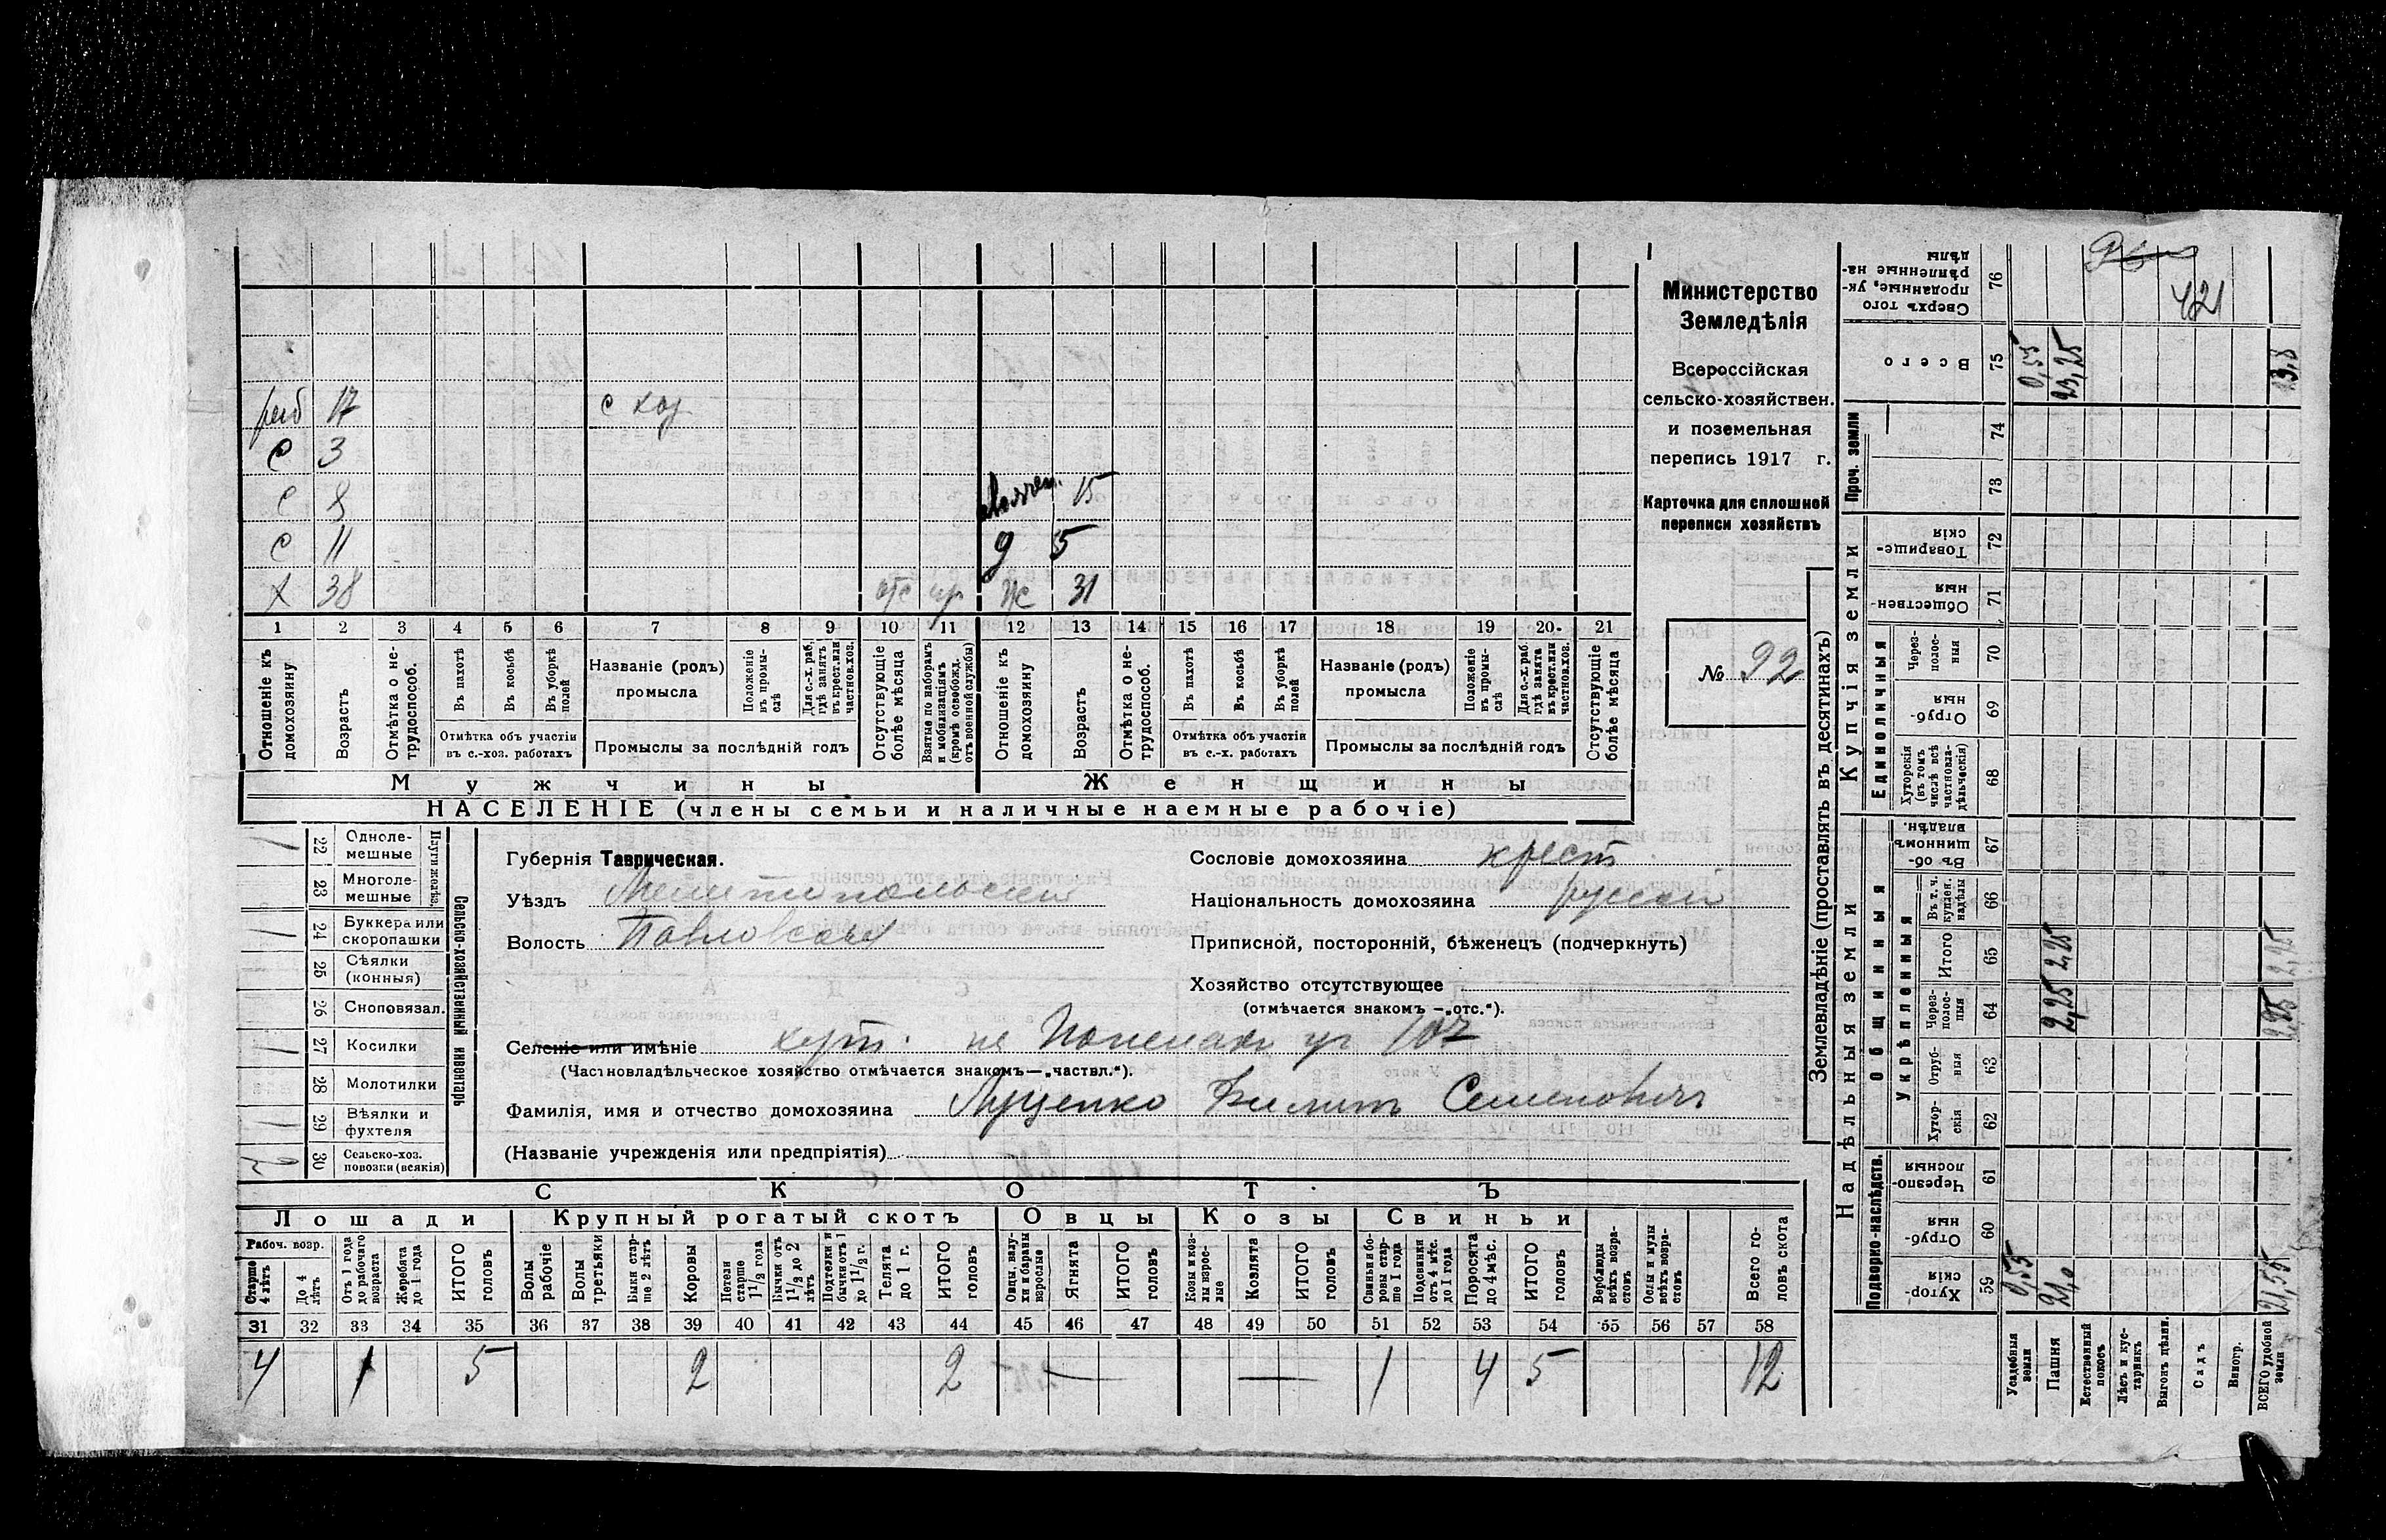 раб 17 с хоз
С 3
С 8 15
С 11 д 5
Х 38 отс Ж 31
1 2 3 4 5 6 7 8 9 10 11 12 13 14 15 16 17 18 19 20 21
Отношеніе къ домохозяину
Возрастъ
Отмѣтка о не-
трудоспособ.
Въ пахотѣ
Въ косьбѣ
Въ уборкѣ
полей
Отмѣтка объ участіи
въ с.-хоз. работахъ
Названіе (родъ)
промысла
Положеніе
въ промы-
слѣ
Для с.-х. раб.
гдѣ занятъ
въ крест. или
частнов. хоз.
Промыслы за послѣдній годъ
Отсутствующіе
болѣе мѣсяца
Взятые по наборамъ
и мобилизаціямъ
(кромѣ освобожд.
отъ военной службы)
Отношеніе къ
домохозяину
Возрастъ
Отмѣтка о не-
трудоспособ.
Въ пахотѣ
Въ косьбѣ
Въ уборкѣ
полей
Отмѣтка объ участіи
въ с.-х. работахъ
Названіе (родъ)
промысла
Положеніе
въ промы-
слѣ
Для с.-х. раб.
гдѣ занята
въ крест. или
частнов. хоз.
Промыслы за послѣдній годъ
Отсутствующіе
болѣе мѣсяца
Мужчины Женщины
НАСЕЛЕНІЕ (члены семьи и наличные наемные рабочіе)
Министерство
Земледѣлія
Всероссійская
сельско-хозяйствен.
и поземельная
перепись 1917 г.
Карточка для сплошной
переписи хозяйствъ
№ 92
Сельско-хозяйственный инвентарь
Плуги желѣз.
1 22 Одноле-
мешные
23 Многоле-
мешные
1 24 Буккера или
скоропашки
25 Сѣялки
(конныя)
26 Сноповязал.
1 27 Косилки
28 Молотилки
1 29 Вѣялки и
фухтеля
30 Сельско-хоз.
повозки (всякія)
Губернія Таврическая.
Уѣздъ Мелитопольскій
Волость Павловская
Сословіе домохозяина крест
Національность домохозяина русскій
Приписной, посторонній, бѣженецъ (подчеркнуть)
Хозяйство отсутствующее
(отмѣчается знакомъ —„отс.“).
Селеніе или имѣніе хут. уч 107
(Частновладѣльческое хозяйство отмѣчается знакомъ—„частвл.“).
Фамилія, имя и отчество домохозяина Луценко Филипъ Семеновичъ
(Названіе учрежденія или предпріятія)
СКОТЪ
Лошади Крупный рогатый скотъ Овцы Козы Свиньи
Рабоч. возр.
Старше
4 лѣтъ
До 4
лѣтъ
Отъ 1 года
до рабочаго
возраста
Жеребята
до 1 года
ИТОГО
головъ
Волы
рабочіе
Волы
третьяки
Быки стар-
ше 2 лѣтъ
Коровы
Нетели
старше
1 1/2 года
Бычки отъ
1 1/2 до 2
лѣтъ
Подтелки и
бычки отъ 1
до 1 1/2 г.
Телята
до 1 г.
ИТОГО
головъ
Овцы, валу-
хи и бараны
взрослые
Ягнята
ИТОГО
головъ
Козы и коз-
лы взрос-
лые
Козлята
ИТОГО
головъ
Свиньи и бо-
ровы стар-
ше 1 года
Подсвинки
отъ 4 мѣс.
до 1 года
Поросята
до 4 мѣс.
ИТОГО
головъ
Верблюды
всѣхъ возра-
стовъ
Ослы и мулы
всѣхъ возра-
стовъ
Всего го-
ловъ скота
31 32 33 34 35 36 37 38 39 40 41 42 43 44 45 46 47 48 49 50 51 52 53 54 55 56 57 58
4 1 5 2 2 — — 1 4 5 12
Землевладѣніе (проставлять въ десятинахъ)
Надѣльныя земли Купчія земли Проч. земли
Подворно-наслѣдств. Общинныя Единоличныя
Укрѣпленныя
Хутор-
скія 59
Отруб-
ныя 60
Черезпо-
лосныя 61
Хутор-
скія 62
Отруб-
ныя 63
Через-
полос-
ныя 64
Итого 65
Въ т. ч.
куплен.
надѣлы 66
Въ об-
щинномъ
владѣн. 67
Хуторскія
(въ томъ
числѣ всѣ
частновла-
дѣльческія) 68
Отруб-
ныя 69
Через-
полос-
ныя 70
Обществен-
ныя 71
Товарище-
скія 72
73
74
Всего 75
Сверхъ того
проданные, ук-
рѣпленные на-
дѣлы 76
Усадебныя
земли 0,55 0,55
Пашня 21,0 2,25 2,25 23,25
Естественный
покосъ
Лѣсъ и кус-
тарникъ
Выгонъ цѣлин.
Садъ
Виногр.
ВСЕГО удобной
земли 21,55 2,25 2,25 23,8
421